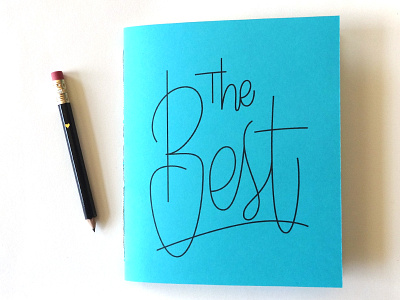 The
Best